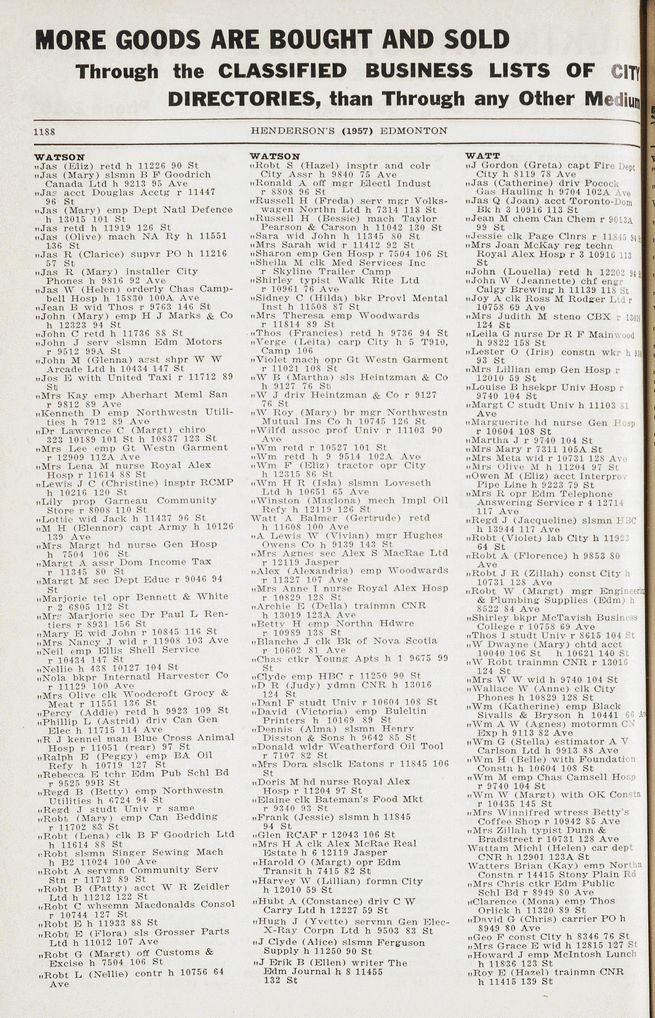 MORE GOODS ARE BOUGHT AND SOLD
Through the CLASSIFIED BUSINESS LISTS OF CITY
DIRECTORIES, than Through any Other Medium
1188 HENDERSON'S (1957) EDMONTON
WATSON
„Jas (Eliz) retd h 11226 90 St
„Jas (Mary) slsmn B F Goodrich
Canada Ltd h 9213 95 Ave
„Jas acct Douglas Acctg r 11447
96 St
„Jas (Mary) emp Dept Natl Defence
h 13015 101 St
„Jas retd h 11919 126 St
„Jas (Olive) mach NA Ry h 11551
136 St
„Jas R (Clarice) supvr PO h 11216
57 St
„Jas R (Mary) installer City
Phones h 9816 92 Ave
„Jas W (Helen) orderly Chas Camp-
bell Hosp h 15830 100A Ave
„Jean B wid Thos r 9763 146 St
„John (Mary) emp H J Marks & Co
h 12323 94 St
„John C retd h 11736 88 St
„John J serv slsmn Edm Motors
r 9512 99A St
„John M (Glenna) asst shpr W W
Arcade Ltd h 10434 147 St
„Jos E with United Taxi r 11712 89
St
„Mrs Kay emp Aberhart Meml San
r 9812 89 Ave
„Kenneth D emp Northwestn Utili-
ties h 7912 89 Ave
„Dr Lawrence C (Margt) chiro
323 10189 101 St h 10837 123 St
„Mrs Lee emp Gt Westn Garment
r 12909 112A Ave
„Mrs Lena M nurse Royal Alex
Hosp r 11614 88 St
„Lewis J C (Christine) insptr RCMP
h 10216 120 St
„Lily prop Garneau Community
Store r 8008 110 St
„Lottie wid Jack h 11437 96 St
„M H (Elennor) capt Army h 10126
139 Ave
„Mrs Margt hd nurse Gen Hosp
h 7504 106 St
„Margt A assr Dom Income Tax
r 11345 80 St
„Margt M sec Dept Educ r 9046 94
St
„Marjorie tel opr Bennett & White
r 2 6805 112 St
„Mrs Marjorie sec Dr Paul L Ren-
tiers r 8931 156 St
„Mary E wid John r 10845 116 St
„Mrs Nancy J wid r 11908 103 Ave
„Neil emp Ellis Shell Service
r 10434 147 St
„Nellie h 438 10127 104 St
„Nola bkpr Internatl Harvester Co
r 11129 100 Ave
„Mrs Olive clk Woodcroft Grocy &
Meat r 11551 136 St
„Percy (Addie) retd h 9923 109 St
„Phillip L (Astrid) driv Can Gen
Elec h 11715 114 Ave
„R J kennel man Blue Cross Animal
Hosp r 11051 (rear) 97 St
„Ralph E (Peggy) emp BA Oil
Refy h 10719 127 St
„Rebecca E tchr Edm Pub Schl Bd
r 9525 99B St
„Regd B (Betty) emp Northwestn
Utilities h 6724 94 St
„Regd J studt Univ r same
„Robt (Mary) emp Can Bedding
r 11702 83 St
„Robt (Lena) clk B F Goodrich Ltd
h 11614 88 St
„Robt slsmn Singer Sewing Mach
h B2 11024 100 Ave
„Robt A servmn Community Serv
Stn r 11712 89 St
„Robt B (Patty) acct W R Zeidler
Ltd h 11212 122 St
„Robt C whsemn Macdonalds Consol
r 10744 127 St
„Robt E h 11933 88 St
„Robt E (Flora) sls Grosser Parts
Ltd h 11012 107 Ave
„Robt G (Margt) off Customs &
Excise h 7504 106 St
„Robt L (Nellie) contr h 10756 64
Ave
WATSON
„Robt S (Hazel) insptr and colr
City Assr h 9840 75 Ave
„Ronald A off mgr Electl Indust
r 8808 96 St
„Russell H (Freda) serv mgr Volks-
wagen Northn Ltd h 7314 118 St
„Russell H (Bessie) mach Taylor
Pearson & Carson h 11042 130 St
„Sara wid John h 11345 80 St
„Mrs Sarah wid r 11412 92 St
„Sharon emp Gen Hosp r 7504 106 St
„Sheila M clk Med Services Inc
r Skyline Trailer Camp
„Shirley typist Walk Rite Ltd
r 10961 76 Ave
„Sidney C (Hilda) bkr Provl Mental
Inst h 11508 87 St
„Mrs Theresa emp Woodwards
r 11814 89 St
„Thos (Francies) retd h 9736 94 St
„Verge (Leita) carp City h 5 T910,
Camp 106
„Violet mach opr Gt Westn Garment
r 11021 108 St
„W B (Martha) sls Heintzman & Co
h 9127 76 St
„W J driv Heintzman & Co r 9127
76 St
„W Roy (Mary) br mgr Northwestn
Mutual Ins Co h 10745 126 St
„Wilfd assoc prof Univ r 11103 90
Ave
„Wm retd r 10527 101 St
„Wm retd h 9 9514 102A Ave
„Wm F (Eliz) tractor opr City
h 12315 86 St
„Wm H R (Isla) slsmn Loveseth
Ltd h 10651 65 Ave
„Winston (Maglona) mech Impl Oil
Refy h 12119 126 St
Watt A Balmer (Gertrude) retd
h 11608 100 Ave
„A Lewis W (Vivian) mgr Hughes
Owens Co h 9139 143 St
„Mrs Agnes sec Alex S MacRae Ltd
r 12119 Jasper
„Alex (Alexandria) emp Woodwards
r 11327 107 Ave
„Mrs Anne I nurse Royal Alex Hosp
r 10829 128 St
„Archie E (Della) trainmn CNR
h 13019 123A Ave
„Betty H emp Northn Hdwre
r 10989 128 St
„Blanche J clk Bk of Nova Scotia
r 10602 81 Ave
„Chas ctkr Young Apts h 1 9675 99
St
„Clyde emp HBC r 11250 90 St
„D R (Judy) ydmn CNR h 13016
124 St
„Danl F studt Univ r 10604 108 St
„David (Victoria) emp Buleltin
Printers h 10169 89 St
„Dennis (Alma) slsmn Henry
Disston & Sons h 9642 85 St
„Donald wldr Weatherford Oil Tool
r 7107 82 St
„Mrs Dora slsclk Eatons r 11845 106
St
„Doris M hd nurse Royal Alex
Hosp r 11204 97 St
„Elaine clk Bateman's Food Mkt
r 9340 93 St
„Frank (Jessie) slsmn h 11845
94 St
„Glen RCAF r 12043 106 St
„Mrs H A clk Alex McRae Real
Estate h 6 12119 Jasper
„Harold O (Margt) opr Edm
Transit h 7415 82 St
„Harvey W (Lillian) formn City
h 12010 59 St
„Hubt A (Constance) driv C W
Carry Ltd h 12227 59 St
„Hugh J (Yvette) servmn Gen Elec-
X-Ray Corpn Ltd h 9503 83 St
„J Clyde (Alice) slsmn Ferguson
Supply h 11250 90 St
„J Erik B (Ellen) writer The
Edm Journal h 8 11455
132 St
WATT
„J Gordon (Greta) capt Fire Dept
City h 8119 78 Ave
„Jas (Catherine) driv Pocock
Gas Hauling h 9704 102A Ave
„Jas Q (Joan) acct Toronto-Dom
Bk h 3 10916 113 St
„Jean M chem Can Chem r 9013A
99 St
„Jessie clk Page Clnrs r 11845
„Mrs Joan McKay reg techn
Royal Alex Hosp r 3 10916 113
St
„John (Louella) retd h 12202
„John W (Jeannette) chf engr
Calgy Brewing h 11139 118 St
„Joy A clk Ross M Rodger Ltd r
10758 69 Ave
„Mrs Judith M steno CBX r
124 St
„Leila G nurse Dr R F Mainwood
h 9822 158 St
„Lester O (Iris) constn wkr h
93 St
„Mrs Lillian emp Gen Hosp r
12010 59 St
„Louise B hsekpr Univ Hosp r
9740 104 St
„Margt C studt Univ h 11103 81
Ave
„Marguerite hd nurse Gen Hosp
r 10604 108 St
„Martha J r 9740 104 St
„Mrs Mary r 7311 105A St
„Mrs Meta wid r 10731 128 Ave
„Mrs Olive M h 11204 97 St
„Owen M (Eliz) acct Interprov
Pipe Line h 9223 79 St
„Mrs R opr Edm Telephone
Answering Service r 4 12714
117 Ave
„Regd J (Jacqueline) slsmn HBC
h 13944 117 Ave
„Robt (Violet) lab City h 11923
64 St
„Robt A (Florence) h 9853 80
Ave
„Robt J R (Zillah) const City h
10731 128 Ave
„Robt W (Margt) mgr Engineering
& Plumbing Supplies (Edm) h
8522 84 Ave
„Shirley bkpr McTavish Business
College r 10758 69 Ave
„Thos I studt Univ r 8615 104 St
„W Dwayne (Mary) chtd acct
10040 106 St h 10621 140 St
„W Robt trainmn CNR r 13016
124 St
„Mrs W W wid h 9740 104 St
„Wallace W (Anne) clk City
Phones h 10829 128 St
„Wm (Katherine) emp Black
Sivalls & Bryson h 10441 66 Av
„Wm A W (Agnes) motormn CN
Exp h 9113 82 Ave
„Wm G (Stella) estimator A V
Carlson Ltd h 9913 88 Ave
„Wm H (Belle) with Foundation
Constn h 10604 108 St
„Wm M emp Chas Camsell Hosp
r 9740 104 St
„Wm W (Margt) with OK Constn
r 10435 145 St
„Mrs Winnifred wtress Betty's
Coffee Shop r 10942 85 Ave
„Mrs Zillah typist Dunn &
Bradstreet r 10731 128 Ave
Wattam Mehl (Helen) car dept
CNR h 12901 123A St
Watters Brian (Kay) emp Northn
Constn r 14415 Stony Plain Rd
„Mrs Chris ctkr Edm Public
Schl Bd r 8949 80 Ave
„Clarence (Mona) emp Thos
Orlick h 11320 89 St
„David G (Chris) carrier PO h
8949 80 Ave
„Geo F const City h 8346 76 St
„Mrs Grace E wid h 12815 127 St
„Howard J emp McIntosh Lunch
h 11836 123 St
„Roy E (Hazel) trainmn CNR
h 11415 139 St